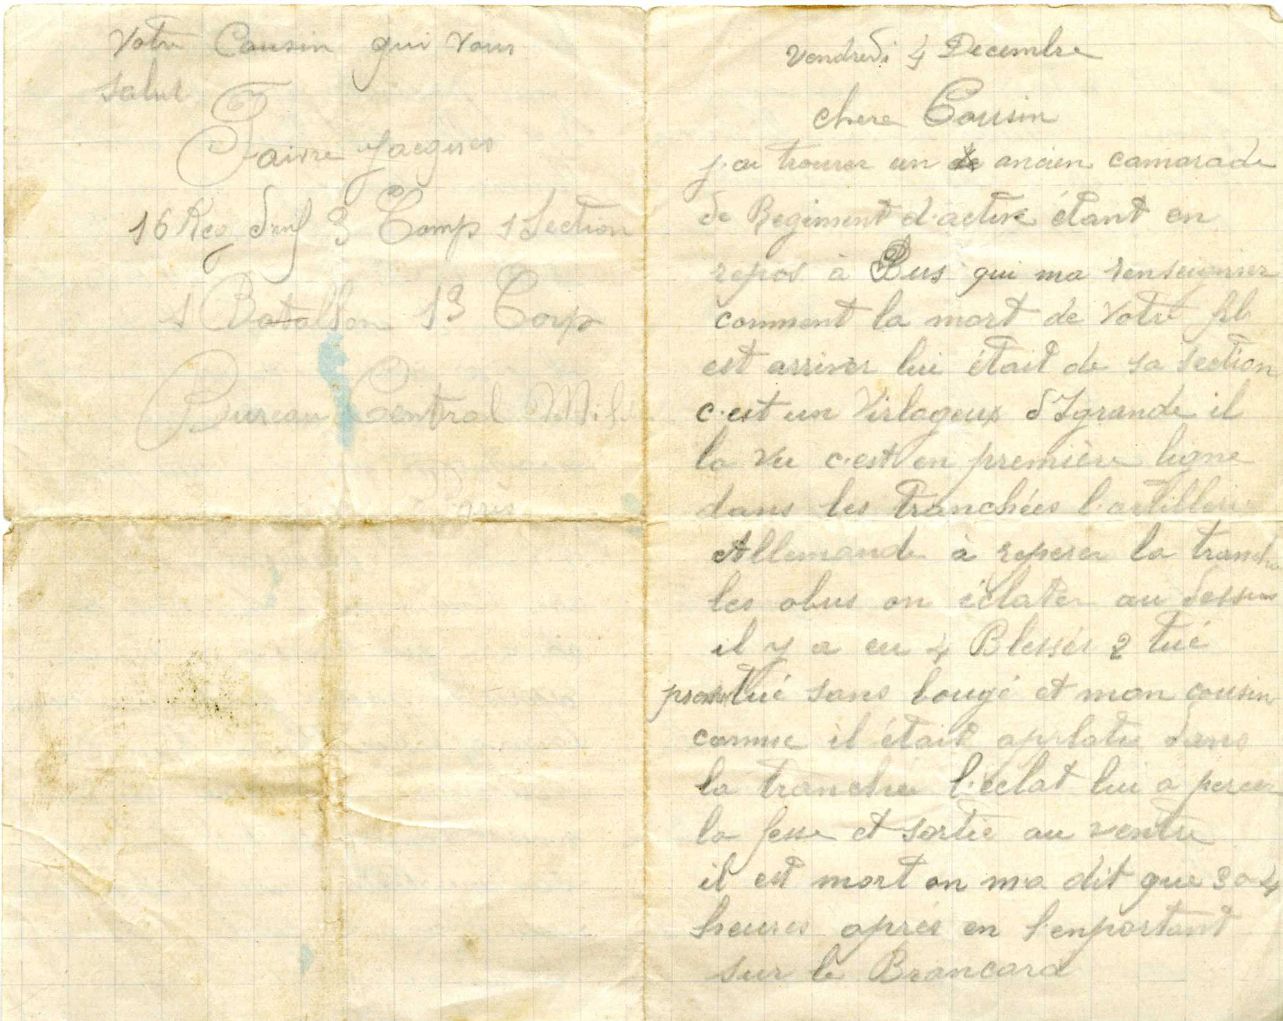 Votre Cousin qui vous
salut
Faivre Jacques
16 Reg d'inf 3 Comp 1 Section
1 Batallon 13 Corp
Bureau Central Mil
Paris
Vendredi 4 Decembre
chere Cousin
j'ai trouver un ancien camarade
de Regiment d'active étant en
repos à Bus qui ma renseigner
comment la mort de Votre fil
est arriver lui était de sa section
c'est un Virlageux d'Igrande il
la vu c'est en première ligne
dans les tranchées l'artillerie
Allemande à reperer la tranché
les obus on éclater au dessus
il y a eu 4 Blessés 2 tué
tué sans bougé et mon cousin
comme il était aplatie dans
la tranchée l'éclat lui a percer
la fesse et sortie au ventre
il est mort on ma dit que 3 a 4
heures aprés en l'enportant
sur le Brancard